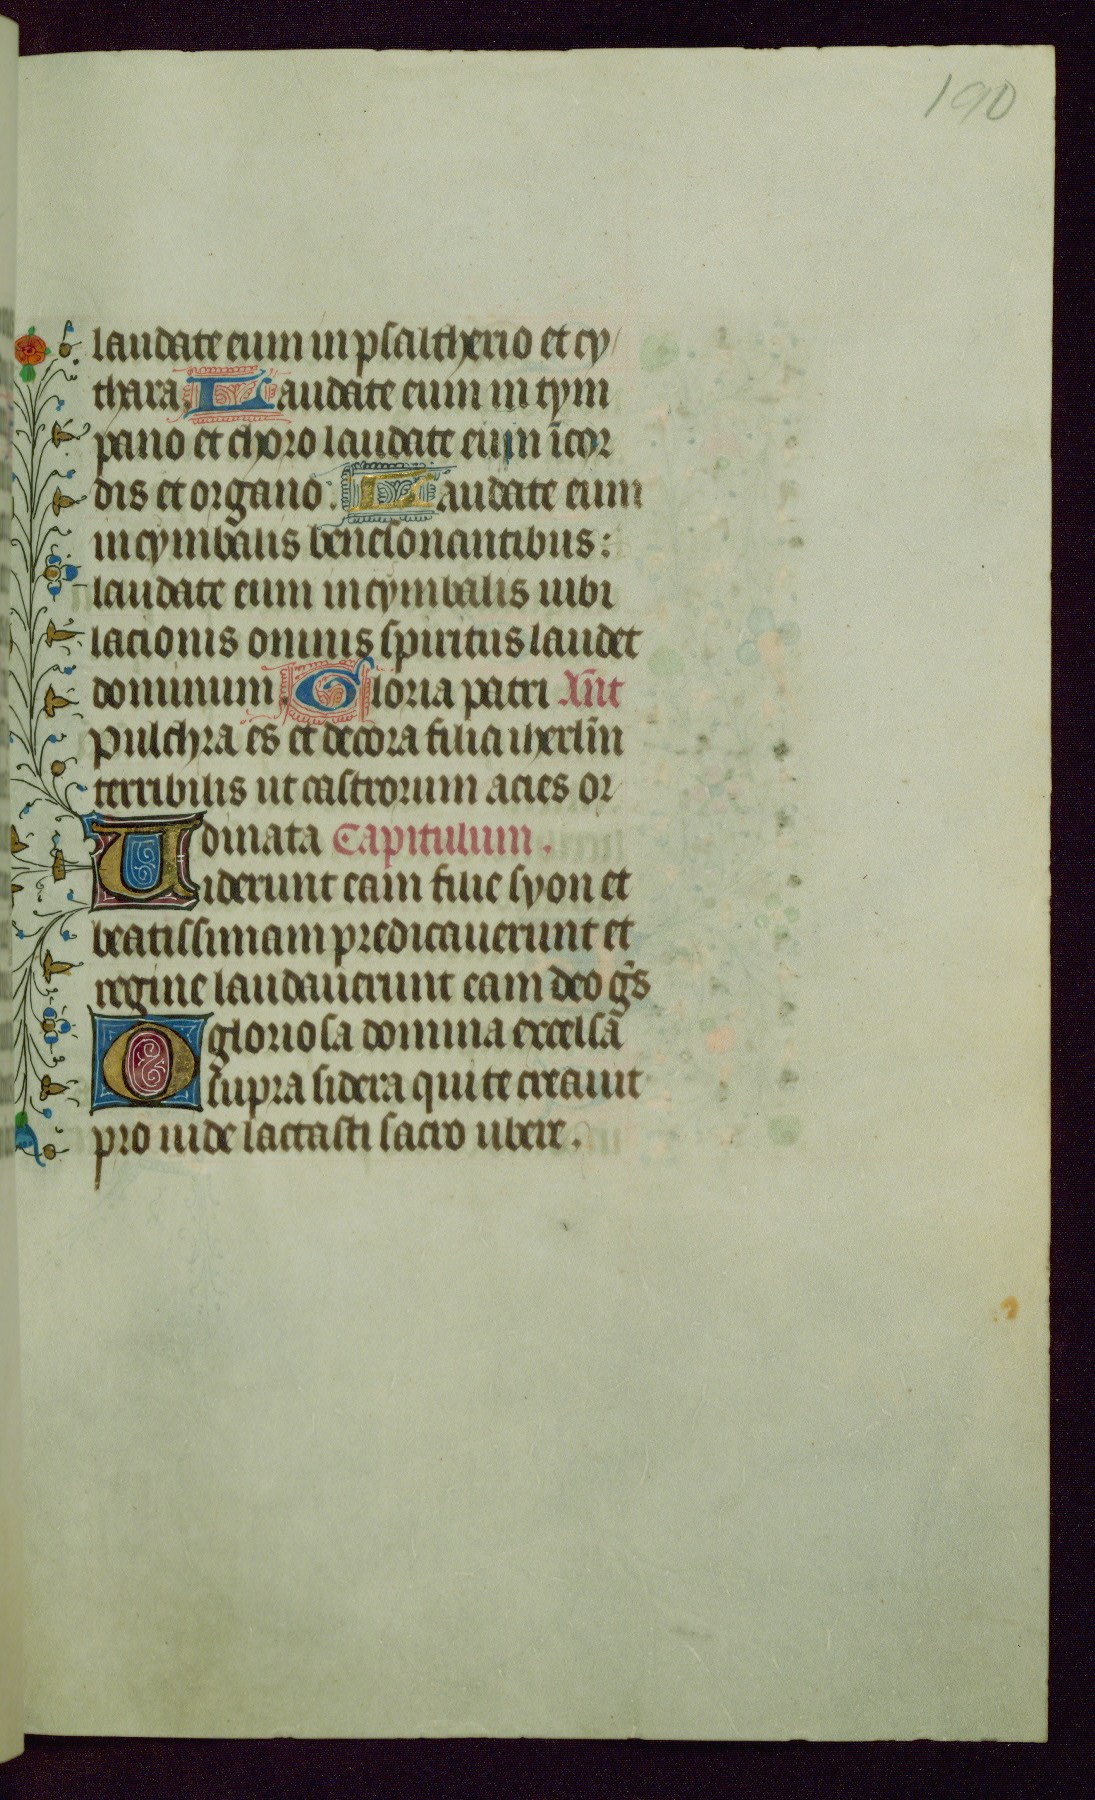 190
laudate eum in psaltherio et cy
thara. Laudate eum in tym
pano et choro laudate eum ī cor
dis et organo. Laudate eum
in cymbalis benesonantibus:
laudate eum in cymbalis iubi
lacionis omnis spiritus laudet
dominum. Gloria patri An̄t
pulchra es et decora filia iherlm̄
terribilis ut castrorum acies or
dinata Capitulum.
Uiderunt eam filie syon et
beatissimam predicauerunt et
regine laudauerunt eam deo gr̄s
O gloriosa domina excelsā
supra sidera qui te creauit
pro uide lactasti sacro ubere.